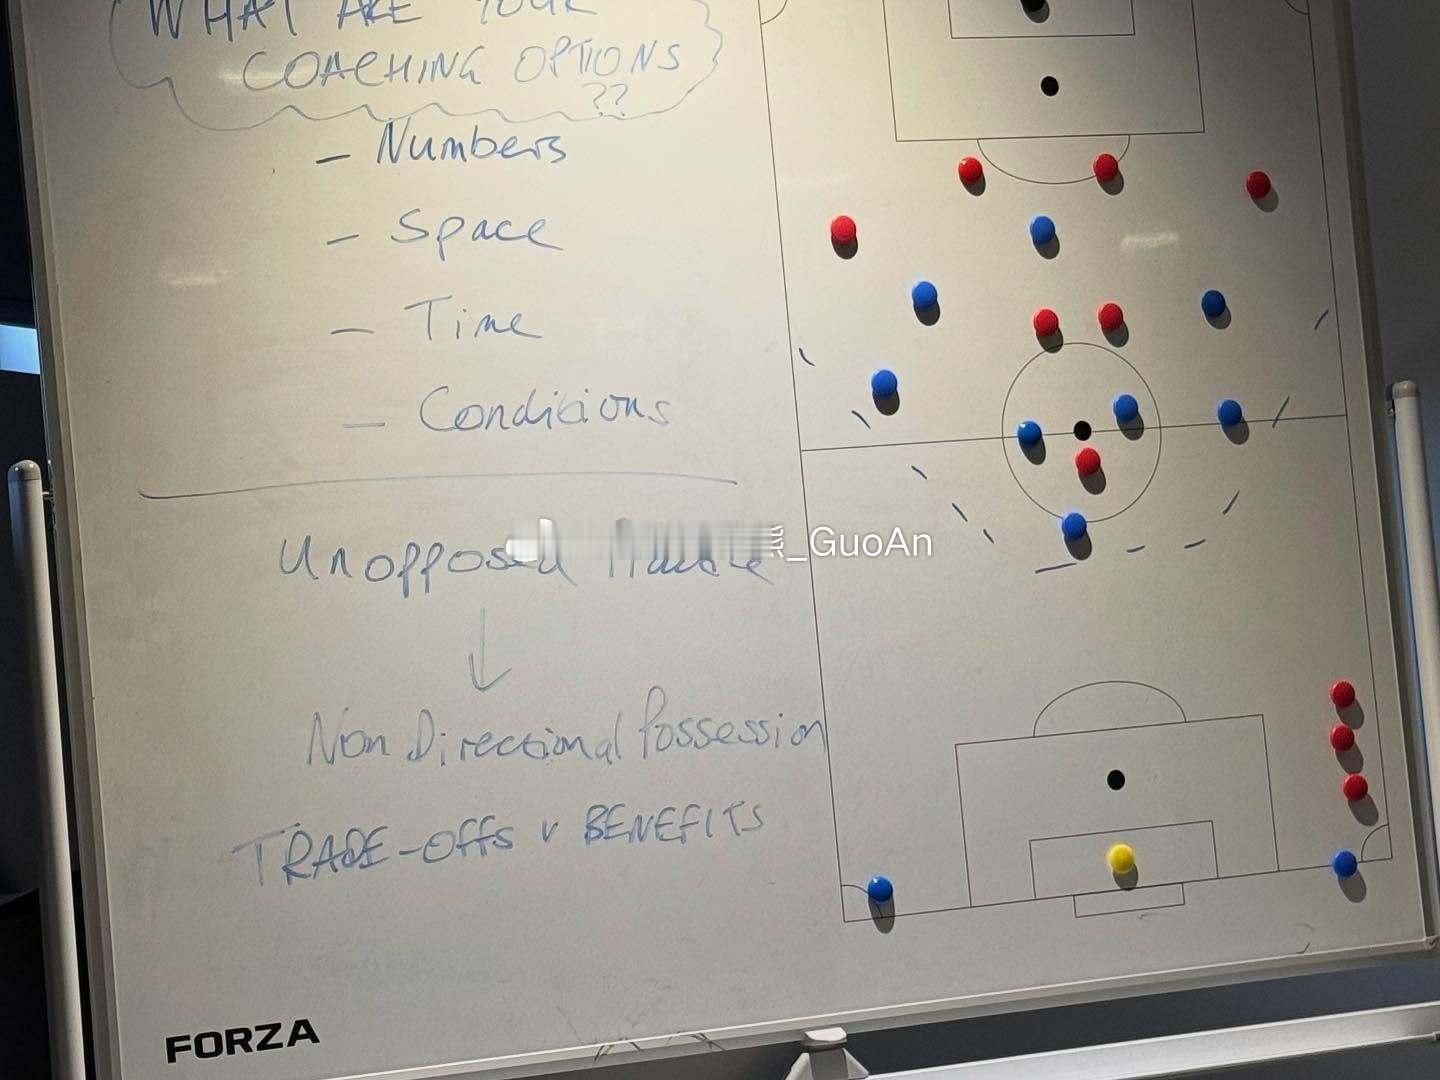 WHAT ARE YOUR
COACHING OPTIONS
??
- Numbers
- Space
- Time
- Conditions
Unopposed
Non Directional Possession
TRADE-OFFS v BENEFITS
_GuoAn
FORZA